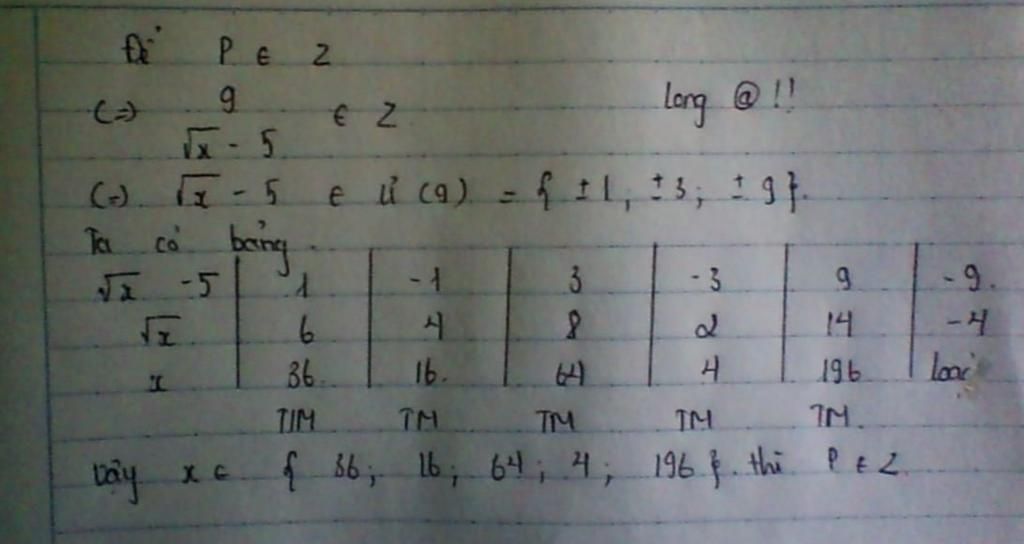 Để P ∈ Z
(=) 9 ∈ Z long @ !!
√x - 5
(=) √x - 5 ∈ Ư (9) = { ±1; ±3; ±9 }.
Ta có bảng.
√x - 5 | 1 | -1 | 3 | -3 | 9 | -9.
√x 6 | 4 | 8 | 2 | 14 | -4
x 36. | 16. | 64 | 4 | 196 | loại
TM TM TM TM TM.
vậy x ∈ { 36; 16; 64; 4; 196 }. thì P ∈ Z